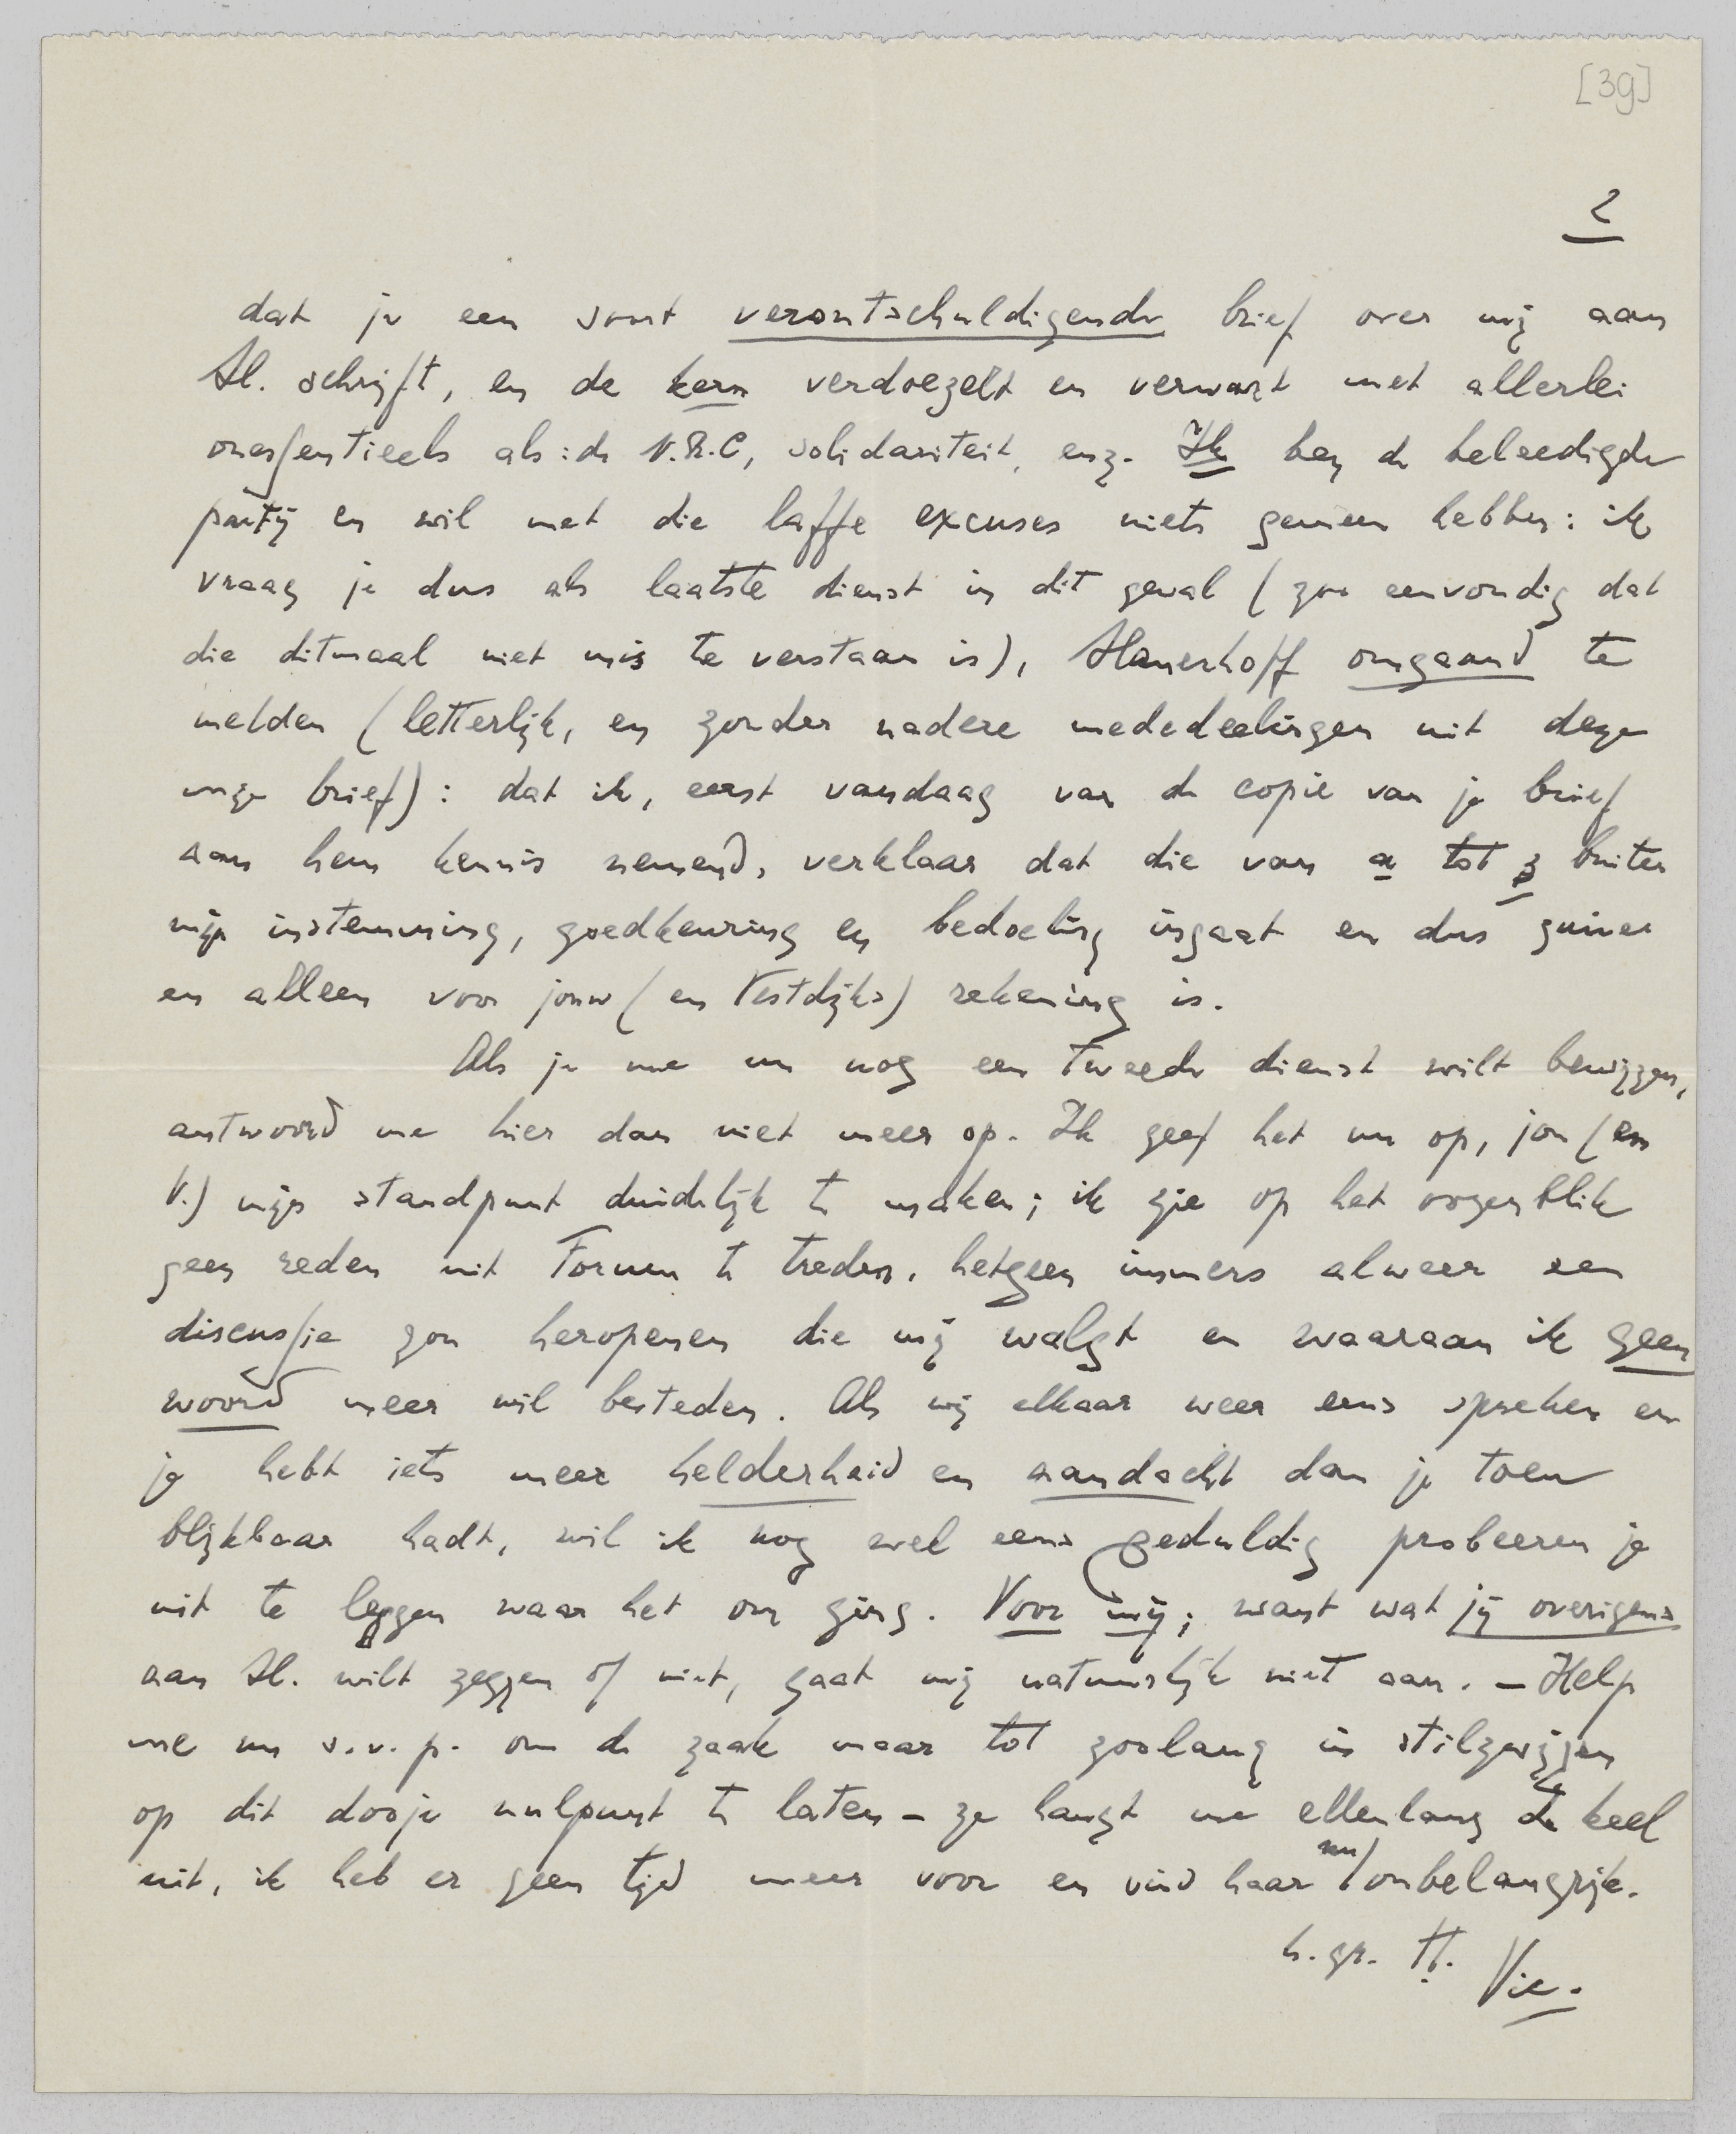 [39]
2
dat je een soort verontschuldigende brief over mij aan
Sl. schrijft, en de kern verdoezelt en verwart met allerlei
onessentieels als: de N.R.C, solidariteit, enz. Ik ben de beleedigde
partij en wil met die laffe excuses niets gemeen hebben: ik
vraag je dus als laatste dienst in dit geval (zoo eenvoudig dat
die ditmaal niet mis te verstaan is), Slauerhoff omgaand te
melden (letterlijk, en zonder nadere mededeelingen uit deze
mijn brief): dat ik, eerst vandaag van de copie van je brief
aan hem kennis nemend, verklaar dat die van a tot z buiten
mijn instemming, goedkeuring en bedoeling ingaat en dus zuiver
en alleen voor jouw (en Vestdijks) rekening is.
Als je me nu nog een tweede dienst wilt bewijzen,
antwoord me hier dan niet meer op. Ik geef het nu op, jou (en
V.) mijn standpunt duidelijk te maken; ik zie op het oogenblik
geen reden uit Forum te treden, hetgeen immers alweer een
discussie zou heropenen die mij walgt en waaraan ik geen
woord meer wil besteden. Als wij elkaar weer eens spreken en
je hebt iets meer helderheid en aandacht dan je toen
blijkbaar hadt, wil ik nog wel eens geduldig probeeren je
uit te leggen waar het om ging. Voor mij; want wat jij overigens
aan Sl. wilt zeggen of niet, gaat mij natuurlijk niet aan. – Help
me nu s.v.p. om de zaak maar tot zoolang in stilzwijgen
op dit dooje nulpunt te laten – ze hangt me ellenlang de keel
uit, ik heb er geen tijd meer voor en vind haar nu onbelangrijk.
h. gr. tt.
Vic.